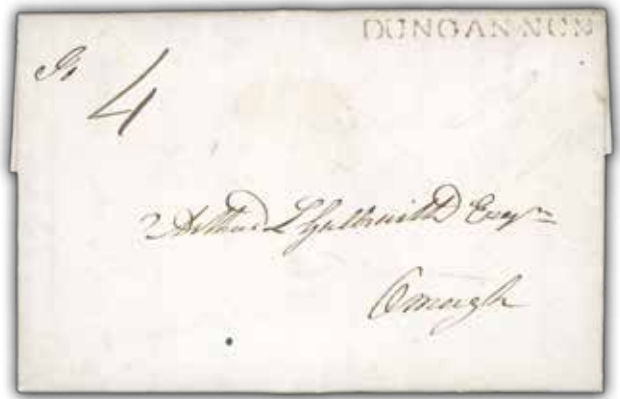 DUNGANNON
4
Arthur L Galbraith Esqr
Omagh